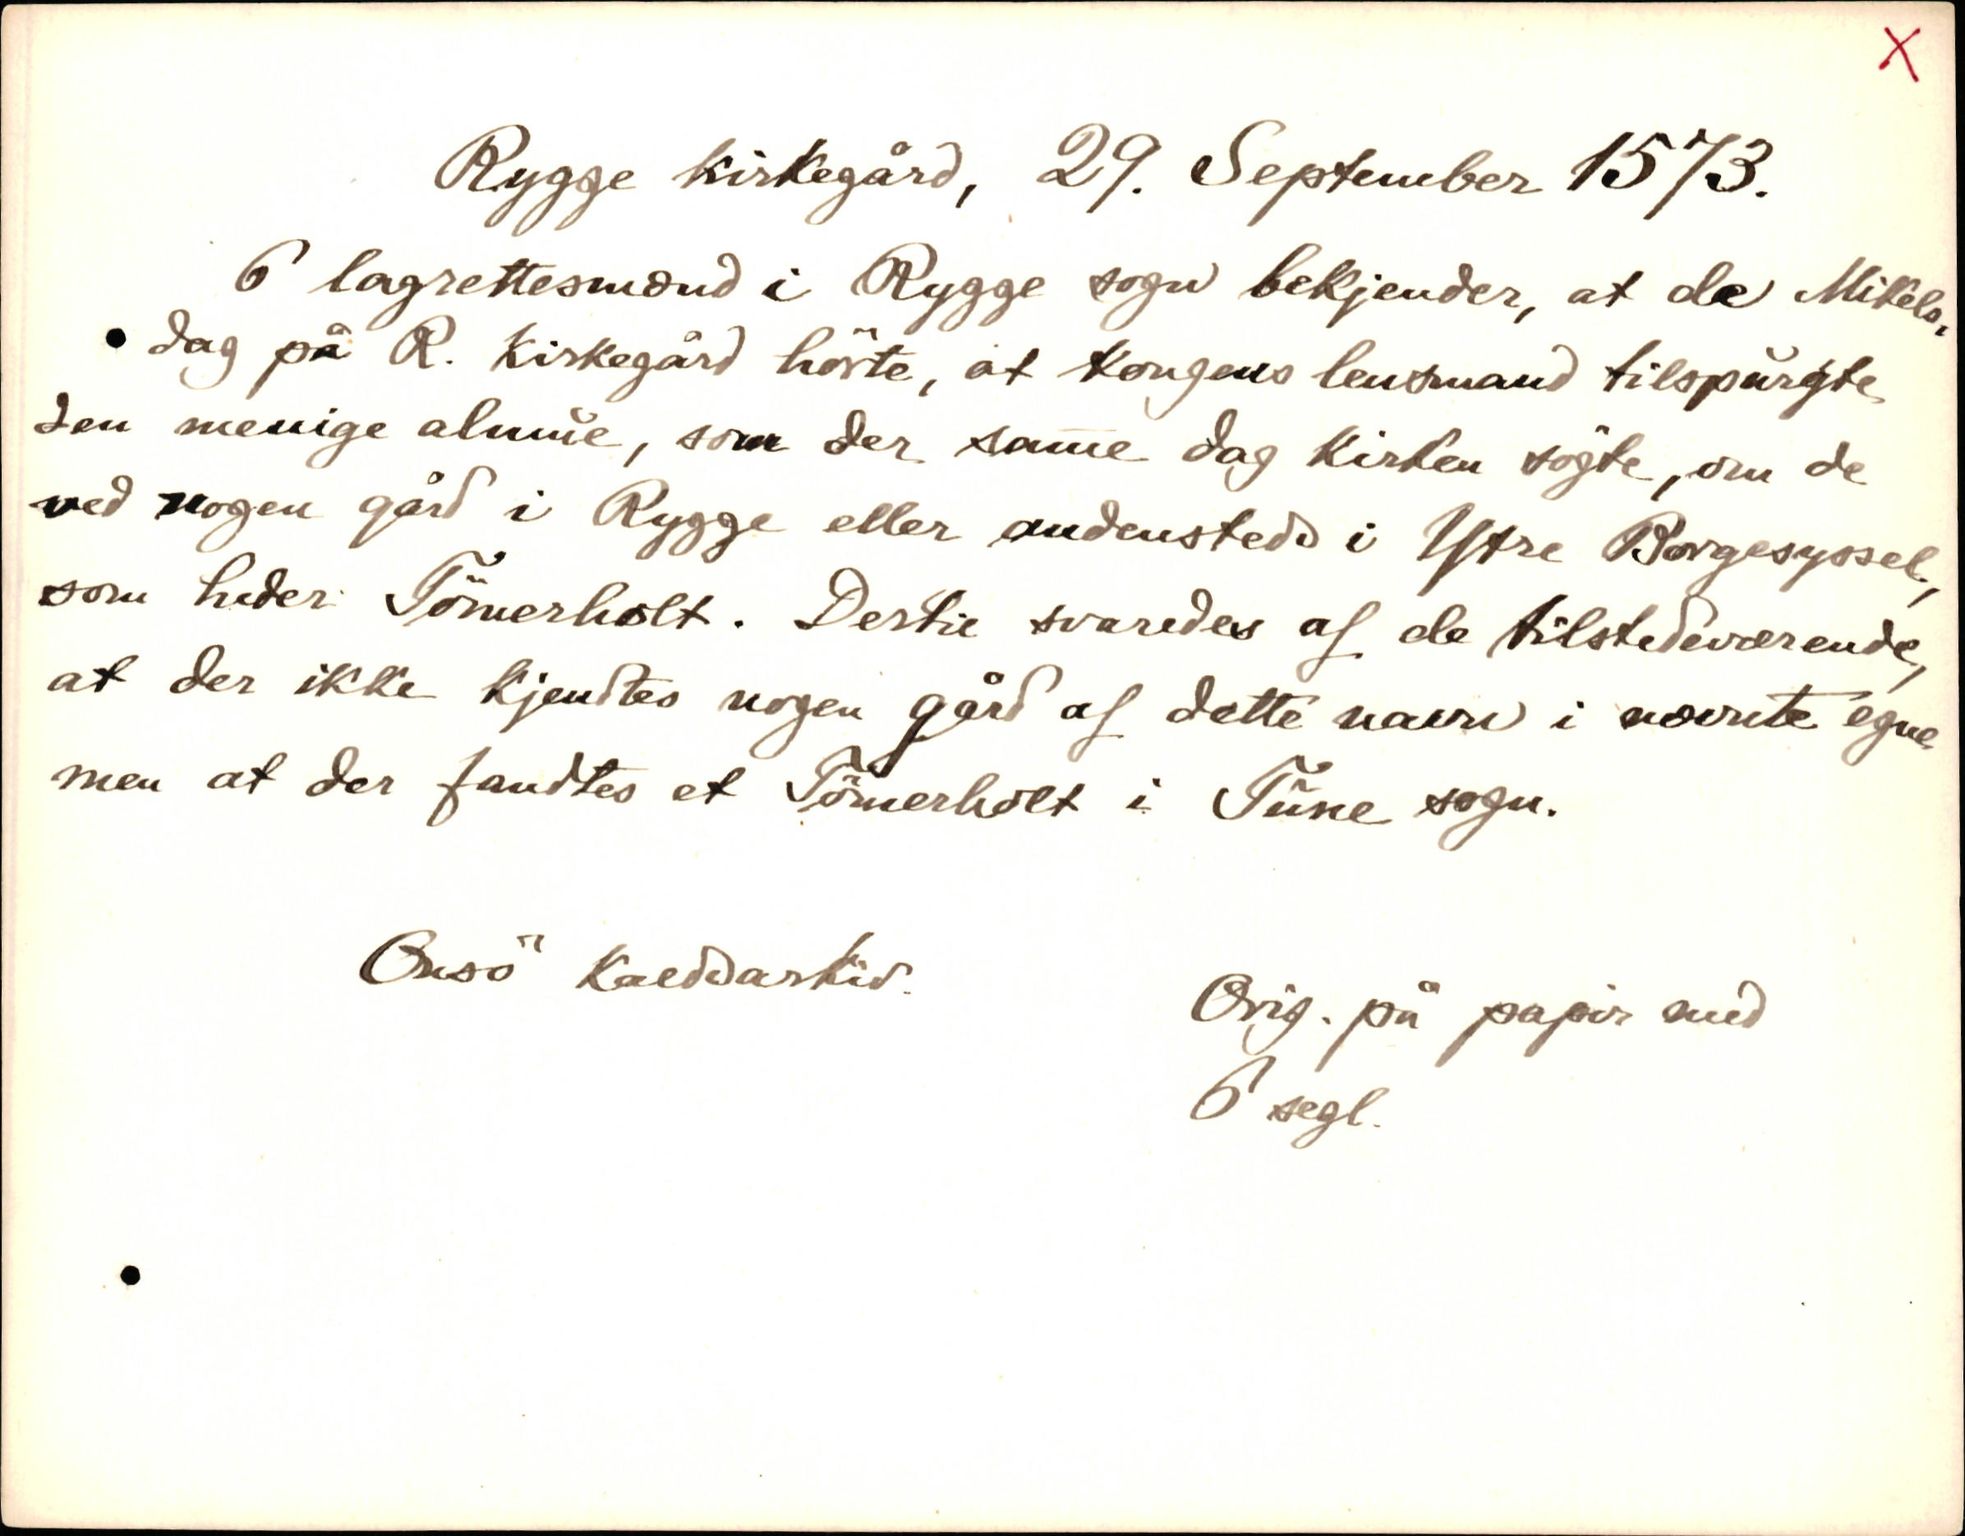 X
Rygge kirkegård, 29. September 1573.
6 lagrettesmænd i Rygge sogn bekjender, at de Mikels,
dag på R. Kirkegård hörte, at kongens lensmand tilspurgte
den menige almue, som der sam̅e dag kirken sögte, om de
ved nogen gård i Rygge eller andensteds i Ytre Borgesyssel,
som heder Tömerholt. Dertil svaredes af de tilstedeværende,
at der ikke kjendtes nogen gård af dette navn i nævnte egne
men at der fandtes et Tömerholt i Tune sogn.
Onsö Kaldsarkiv.
Orig. på papir med
6 segl.